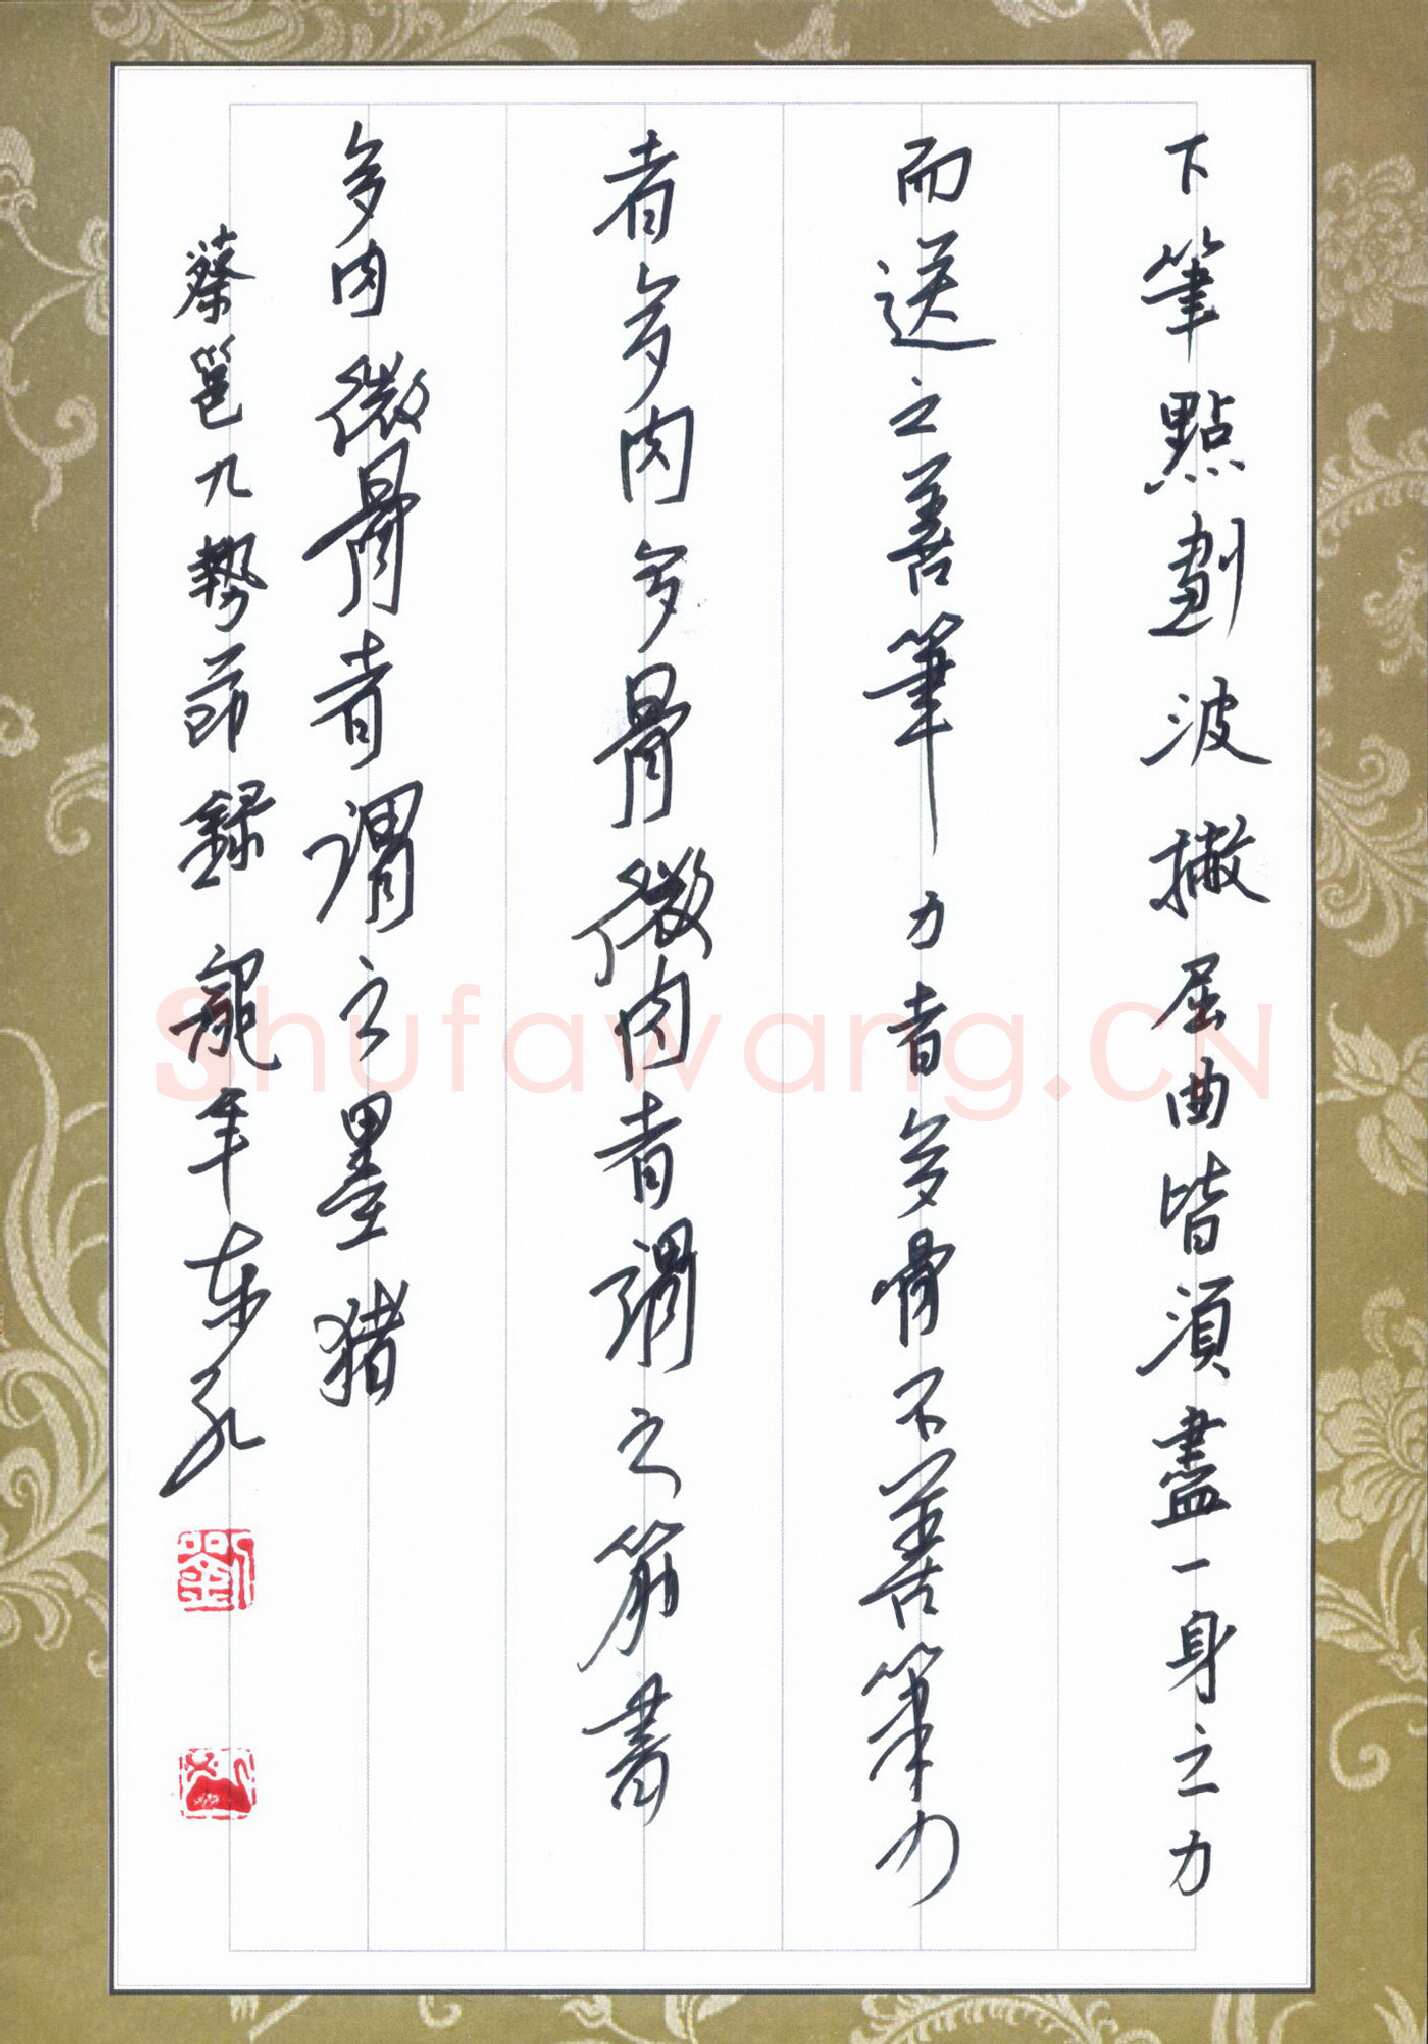 下筆點劃波撇屈曲皆須盡一身之力
而送之善筆力者多骨不善筆力
者多肉多骨微肉者謂之筋書
多肉微骨者謂之墨猪
蔡邕九勢節録龍年东孔
劉
Shufawang.CN